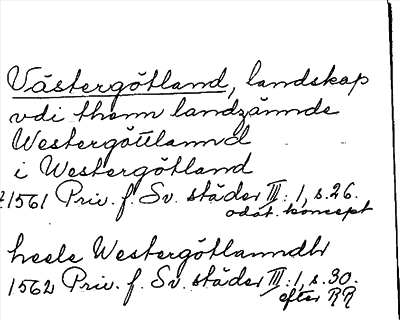 Västergötland, landskap
vdi themn landzännde
Westergöttlannd
i Westergötland
1561 Priv. f. Sv. städer III:1, s. 26.
odat. koncept
heele Westergötlanndh
1562 Priv. f. Sv. städer III:1, s. 30.
efter RR